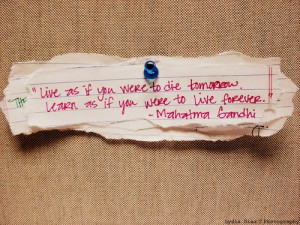 The
"Live as if you were to die tomorrow.
Learn as if you were to live forever."
- Mahatma Gandhi